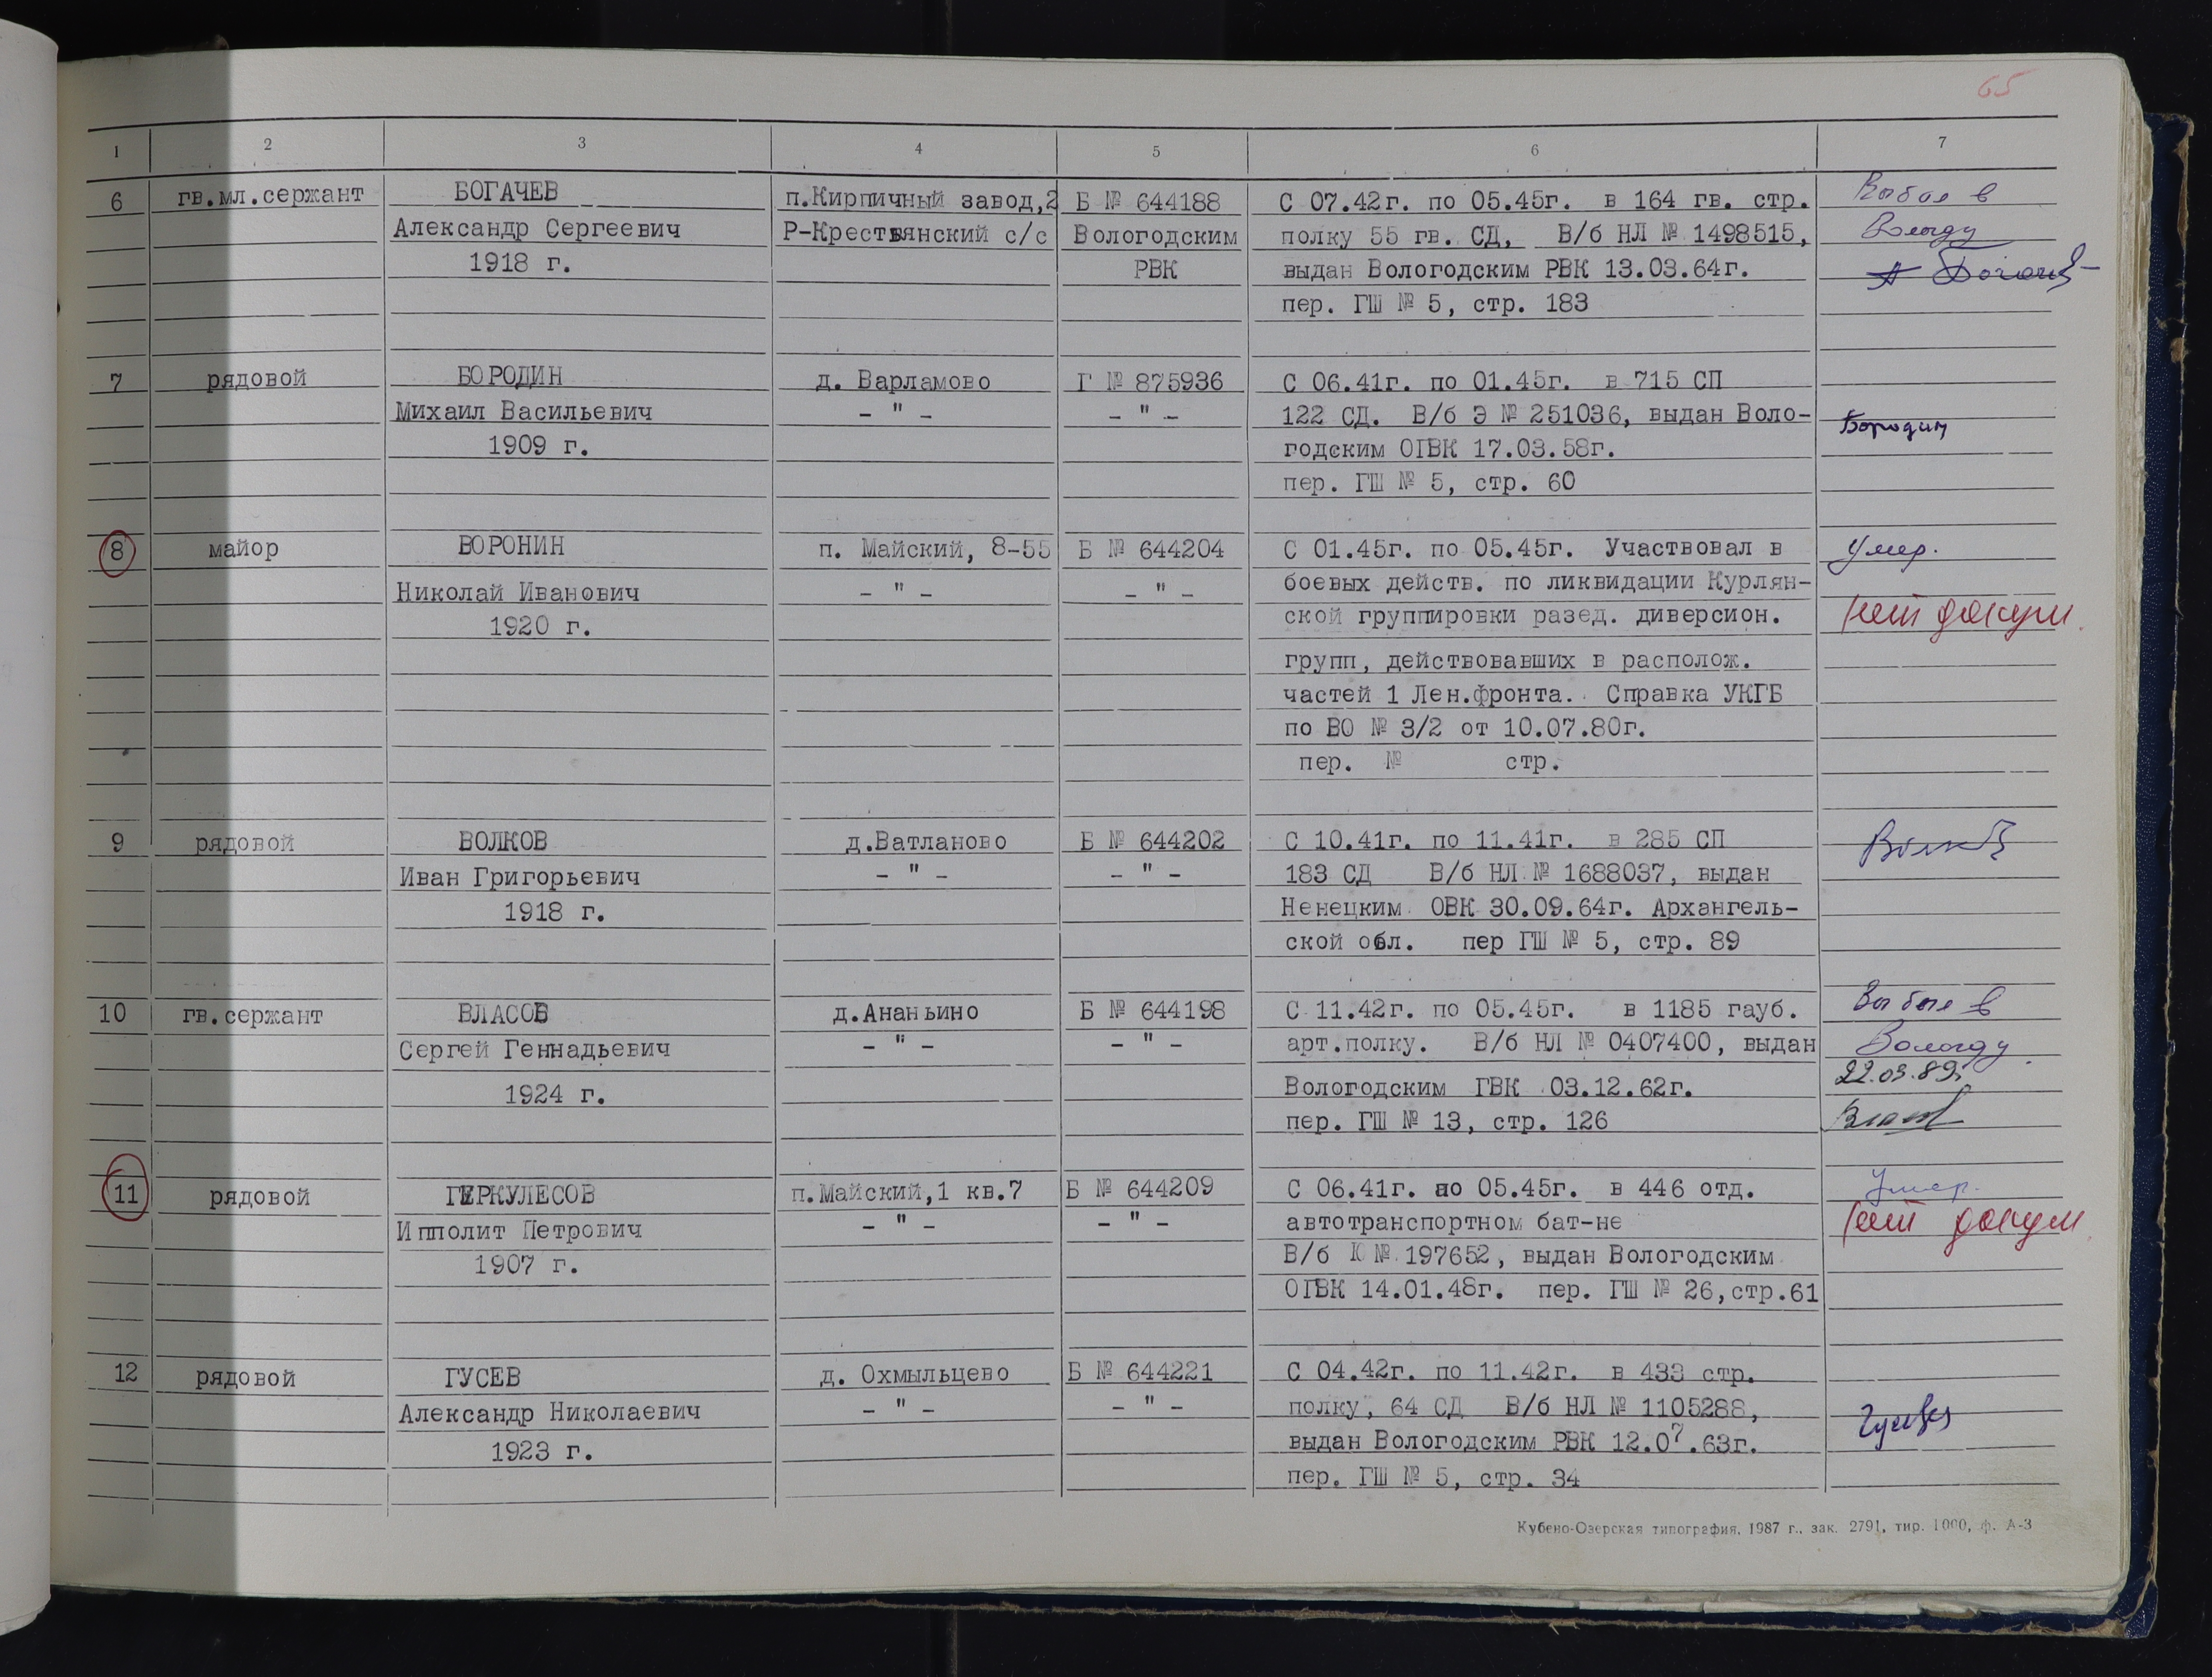 65
1 2 3 4 5 6 7
6 гв.мл.сержант БОГАЧЕВ п.Кирпичный завод,2 Б № 644188 С 07.42г. по 05.45г. в 164 гв. стр. Выбыл в
Александр Сергеевич Р-Крестьянский с/с Вологодским полку 55 гв. СД, В/б НЛ № 1498515, Вологду
1918 г. РВК выдан Вологодским РВК 13.03.64г.
пер. ГШ № 5, стр. 183
7 рядовой БОРОДИН д. Варламово Г № 875936 С 06.41г. по 01.45г. в 715 СП
Михаил Васильевич - " - - " - 122 СД. В/б Э № 251036, выдан Воло- Бородин
1909 г. годским ОГВК 17.03.58г.
пер. ГШ № 5, стр. 60
8 майор ВОРОНИН п. Майский, 8-55 Б № 644204 С 01.45г. по 05.45г. Участвовал в Умер.
Николай Иванович - " - - " - боевых действ. по ликвидации Курлян-
1920 г. ской группировки разед. диверсион. нет докум.
групп, действовавших в располож.
частей 1 Лен.фронта. Справка УКГБ
по ВО № 3/2 от 10.07.80г.
пер. № стр.
9 рядовой ВОЛКОВ д.Ватланово Б № 644202 С 10.41г. по 11.41г. в 285 СП Волков
Иван Григорьевич - " - - " - 183 СД В/б НЛ № 1688037, выдан
1918 г. Ненецким ОВК 30.09.64г. Архангель-
ской обл. пер ГШ № 5, стр. 89
10 гв.сержант ВЛАСОВ д.Ананьино Б № 644198 С 11.42г. по 05.45г. в 1185 гауб. Выбыл в
Сергей Геннадьевич - " - - " - арт.полку. В/б НЛ № 0407400, выдан Вологду
1924 г. Вологодским ГВК 03.12.62г. 22.03.89г
пер. ГШ № 13, стр. 126 Власов
11 рядовой ГЕРКУЛЕСОВ п.Майский,1 кв.7 Б № 644209 С 06.41г. по 05.45г. в 446 отд. Умер.
Ипполит Петрович - " - - " - автотранспортном бат-не нет докум.
1907 г. В/б К № 197652, выдан Вологодским
ОГВК 14.01.48г. пер. ГШ № 26,стр.61
12 рядовой ГУСЕВ д. Охмыльцево Б № 644221 С 04.42г. по 11.42г. в 433 стр.
Александр Николаевич - " - - " - полку, 64 СД В/б НЛ № 1105288, Гусев
1923 г. выдан Вологодским РВК 12.07.63г.
пер. ГШ № 5, стр. 34
Кубено-Озерская типография, 1987 г., зак. 2791, тир. 1000, ф. А-3